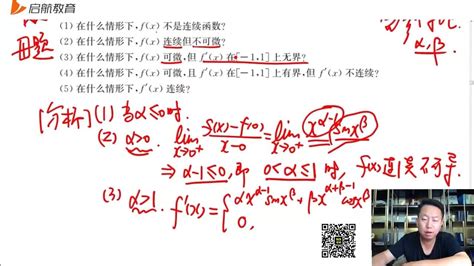 启航教育
母题
(1) 在什么情形下,f(x) 不是连续函数?
(2) 在什么情形下,f(x) 连续但不可微?
(3) 在什么情形下,f(x) 可微,但 f′(x) 在[-1,1] 上无界?
(4) 在什么情形下,f(x) 可微,且 f′(x) 在[-1,1] 上有界,但 f′(x) 不连续?
(5) 在什么情形下,f′(x) 连续?
α,β
[分析] (1) 当α≤0时.
(2) α>0. lim x→0⁺ f(x)-f(0) / x-0 = lim x→0⁺ x^(α-1) sin x^β
⇒ α-1≤0, 即 0<α≤1 时, f(x)连续不可导.
(3) α>1. f′(x)= { αx^(α-1) sin x^β + βx^(α+β-1) cos x^β
0,